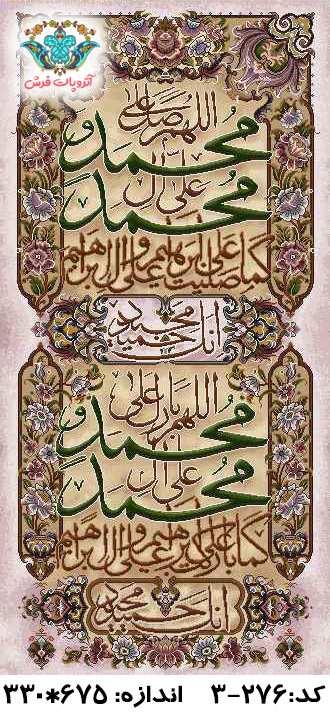 آتروپات فرش
اللهم صل علی
محمد و
علی آل
محمد
کما صلیت علی ابراهیم و علی آل ابراهیم
انک حمید مجید
اللهم بارک علی
محمد و
علی آل
محمد
کما بارکت علی ابراهیم و علی آل ابراهیم
انک حمید مجید
کد:۲۷۶-۳ اندازه: ۶۷۵*۳۳۰